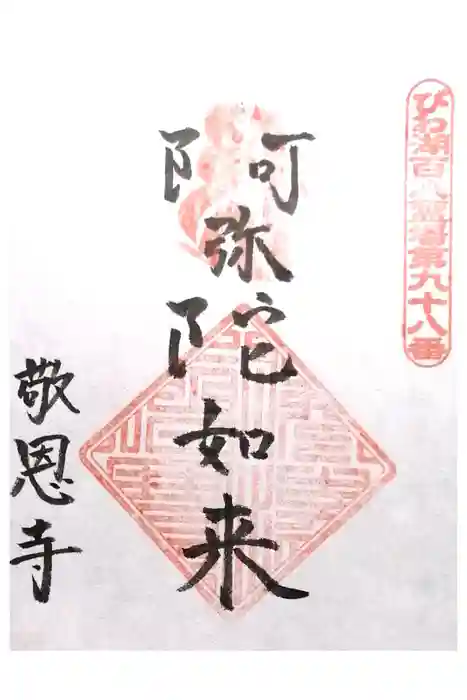 びわ湖百八霊場第九十八番
阿弥陀如来
敬恩寺